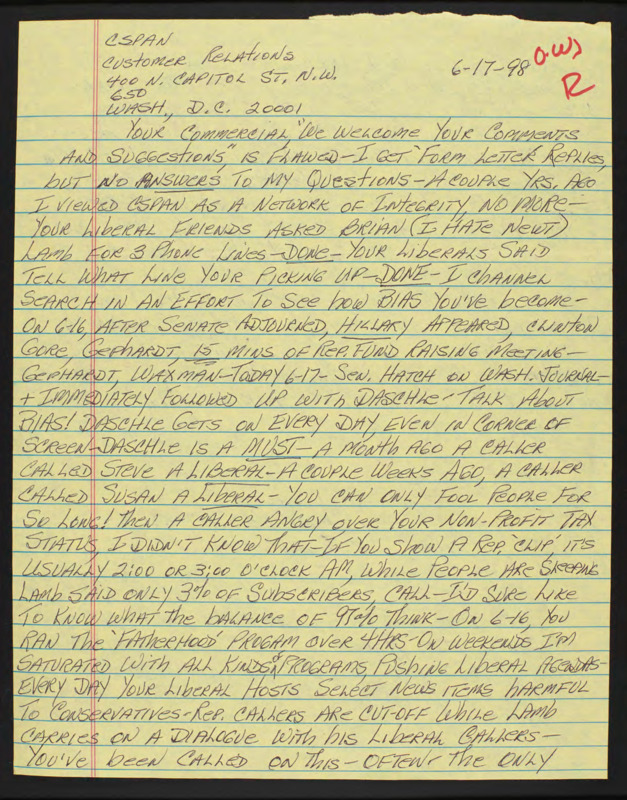 CSPAN
CUSTOMER RELATIONS
400 N. CAPITOL ST, N.W.
650
WASH., D.C. 20001
6-17-98
R
YOUR COMMERCIAL, "WE WELCOME YOUR COMMENTS
AND SUGGESTIONS", IS FLAWED-I GET "FORM LETTER" REPLIES,
BUT NO ANSWERS TO MY QUESTIONS-A COUPLE YRS. AGO
I VIEWED CSPAN AS A NETWORK OF INTEGRITY, NO MORE-
YOUR LIBERAL FRIENDS ASKED BRIAN (I HATE NEWT)
LAMB FOR 3 PHONE LINES-DONE-YOUR LIBERALS SAID
TELL WHAT LINE YOUR PICKING UP-DONE-I CHANNEL
SEARCH IN AN EFFORT TO SEE HOW BIAS YOU'VE BECOME-
ON 6-16, AFTER SENATE ADJOURNED, HILLARY APPEARED, CLINTON
GORE, GEPHARDT, 15 MINS OF REP. FUND RAISING MEETING-
GEPHARDT, WAXMAN-TODAY 6-17- SEN. HATCH ON WASH. JOURNAL-
+ IMMEDIATELY FOLLOWED UP WITH DASCHLE-TALK ABOUT
BIAS! DASCHLE GETS ON EVERY DAY EVEN IN CORNER OF
SCREEN-DASCHLE IS A MUST-A MONTH AGO A CALLER
CALLED STEVE A LIBERAL-A COUPLE WEEKS AGO, A CALLER
CALLED SUSAN A LIBERAL-YOU CAN ONLY FOOL PEOPLE FOR
SO LONG! THEN A CALLER ANGRY OVER YOUR NON-PROFIT TAX
STATUS, I DIDN'T KNOW THAT-IF YOU SHOW A REP. 'CLIP', IT'S
USUALLY 2:00 OR 3:00 O'CLOCK AM, WHILE PEOPLE ARE SLEEPING
LAMB SAID ONLY 3% OF SUBSCRIBERS, CALL-I'D SURE LIKE
TO KNOW WHAT THE BALANCE OF 97% THINK-ON 6-16, YOU
RAN THE 'FATHERHOOD' PROGAM OVER 4 HRS-ON WEEKENDS I'M
SATURATED WITH ALL KINDS OF PROGRAMS PUSHING LIBERAL AGENDAS-
EVERY DAY YOUR LIBERAL HOSTS SELECT NEWS ITEMS HARMFUL
TO CONSERVATIVES-REP. CALLERS ARE CUT-OFF WHILE LAMB
CARRIES ON A DIALOGUE WITH HIS LIBERAL CALLERS-
YOU'VE BEEN CALLED ON THIS-OFTEN- THE ONLY